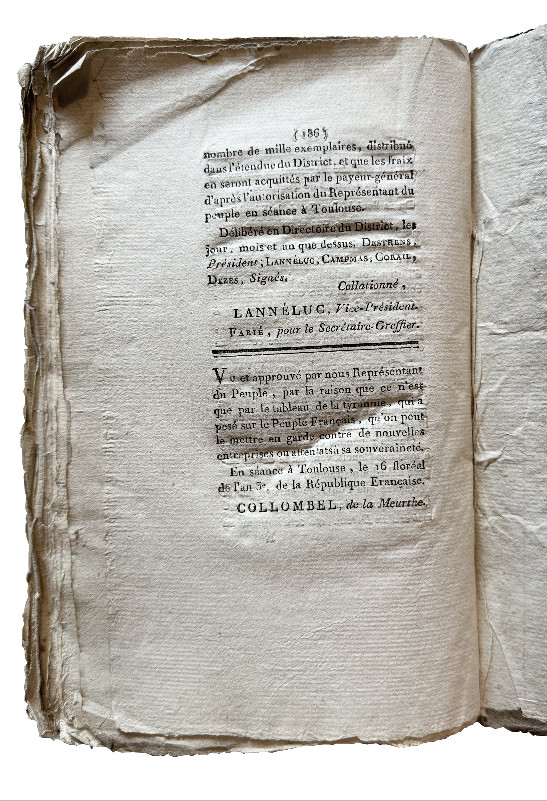 ( 186 )
nombre de mille exemplaires, distribué
dans l'étendue du District, et que les fraix
en seront acquittés par le payeur-général
d'après l'autorisation du Représentant du
peuple en séance à Toulouse.
Délibéré en Directoire du District, les
jour, mois et an que dessus. DESTRENS,
Président; LANNÉLUC, CAMPMAS, CORAIL,
DEZES, Signés.
Collationné,
LANNÉLUC, Vice-Président.
FARIÉ, pour le Secrétaire-Greffier.
Vu et approuvé par nous Représentant
du Peuple, par la raison que ce n'est
que par le tableau de la tyrannie, qui a
pesé sur le Peuple Français, qu'on peut
le mettre en garde contre de nouvelles
entreprises ou attentats à sa souveraineté.
En séance à Toulouse, le 16 floréal
de l'an 3e. de la République Française.
COLLOMBEL, de la Meurthe.